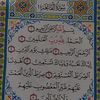 سُورَةُ الْفَاتِحَةِ
بِسْمِ اللَّهِ
الرَّحْمَٰنِ الرَّحِيمِ
الْحَمْدُ لِلَّهِ رَبِّ الْعَالَمِينَ
الرَّحْمَٰنِ الرَّحِيمِ مَالِكِ يَوْمِ الدِّينِ
إِيَّاكَ نَعْبُدُ وَإِيَّاكَ نَسْتَعِينُ
اهْدِنَا الصِّرَاطَ الْمُسْتَقِيمَ
صِرَاطَ الَّذِينَ أَنْعَمْتَ عَلَيْهِمْ
غَيْرِ الْمَغْضُوبِ عَلَيْهِمْ